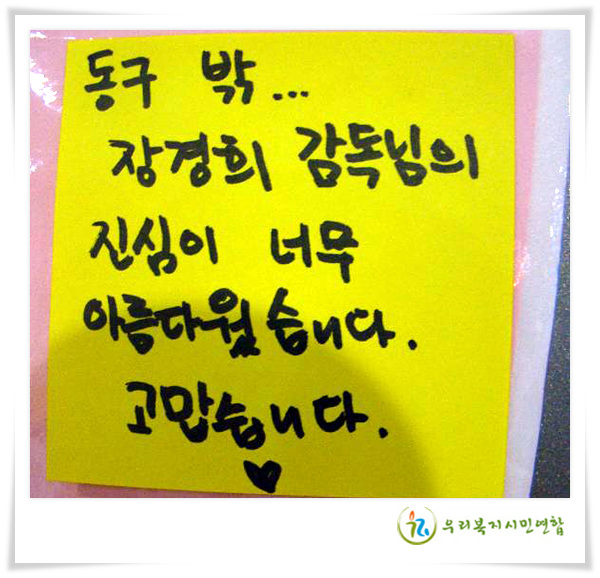 동구 밖...
장경희 감독님의
진심이 너무
아름다웠습니다.
고맙습니다.
♥
우리복지시민연합